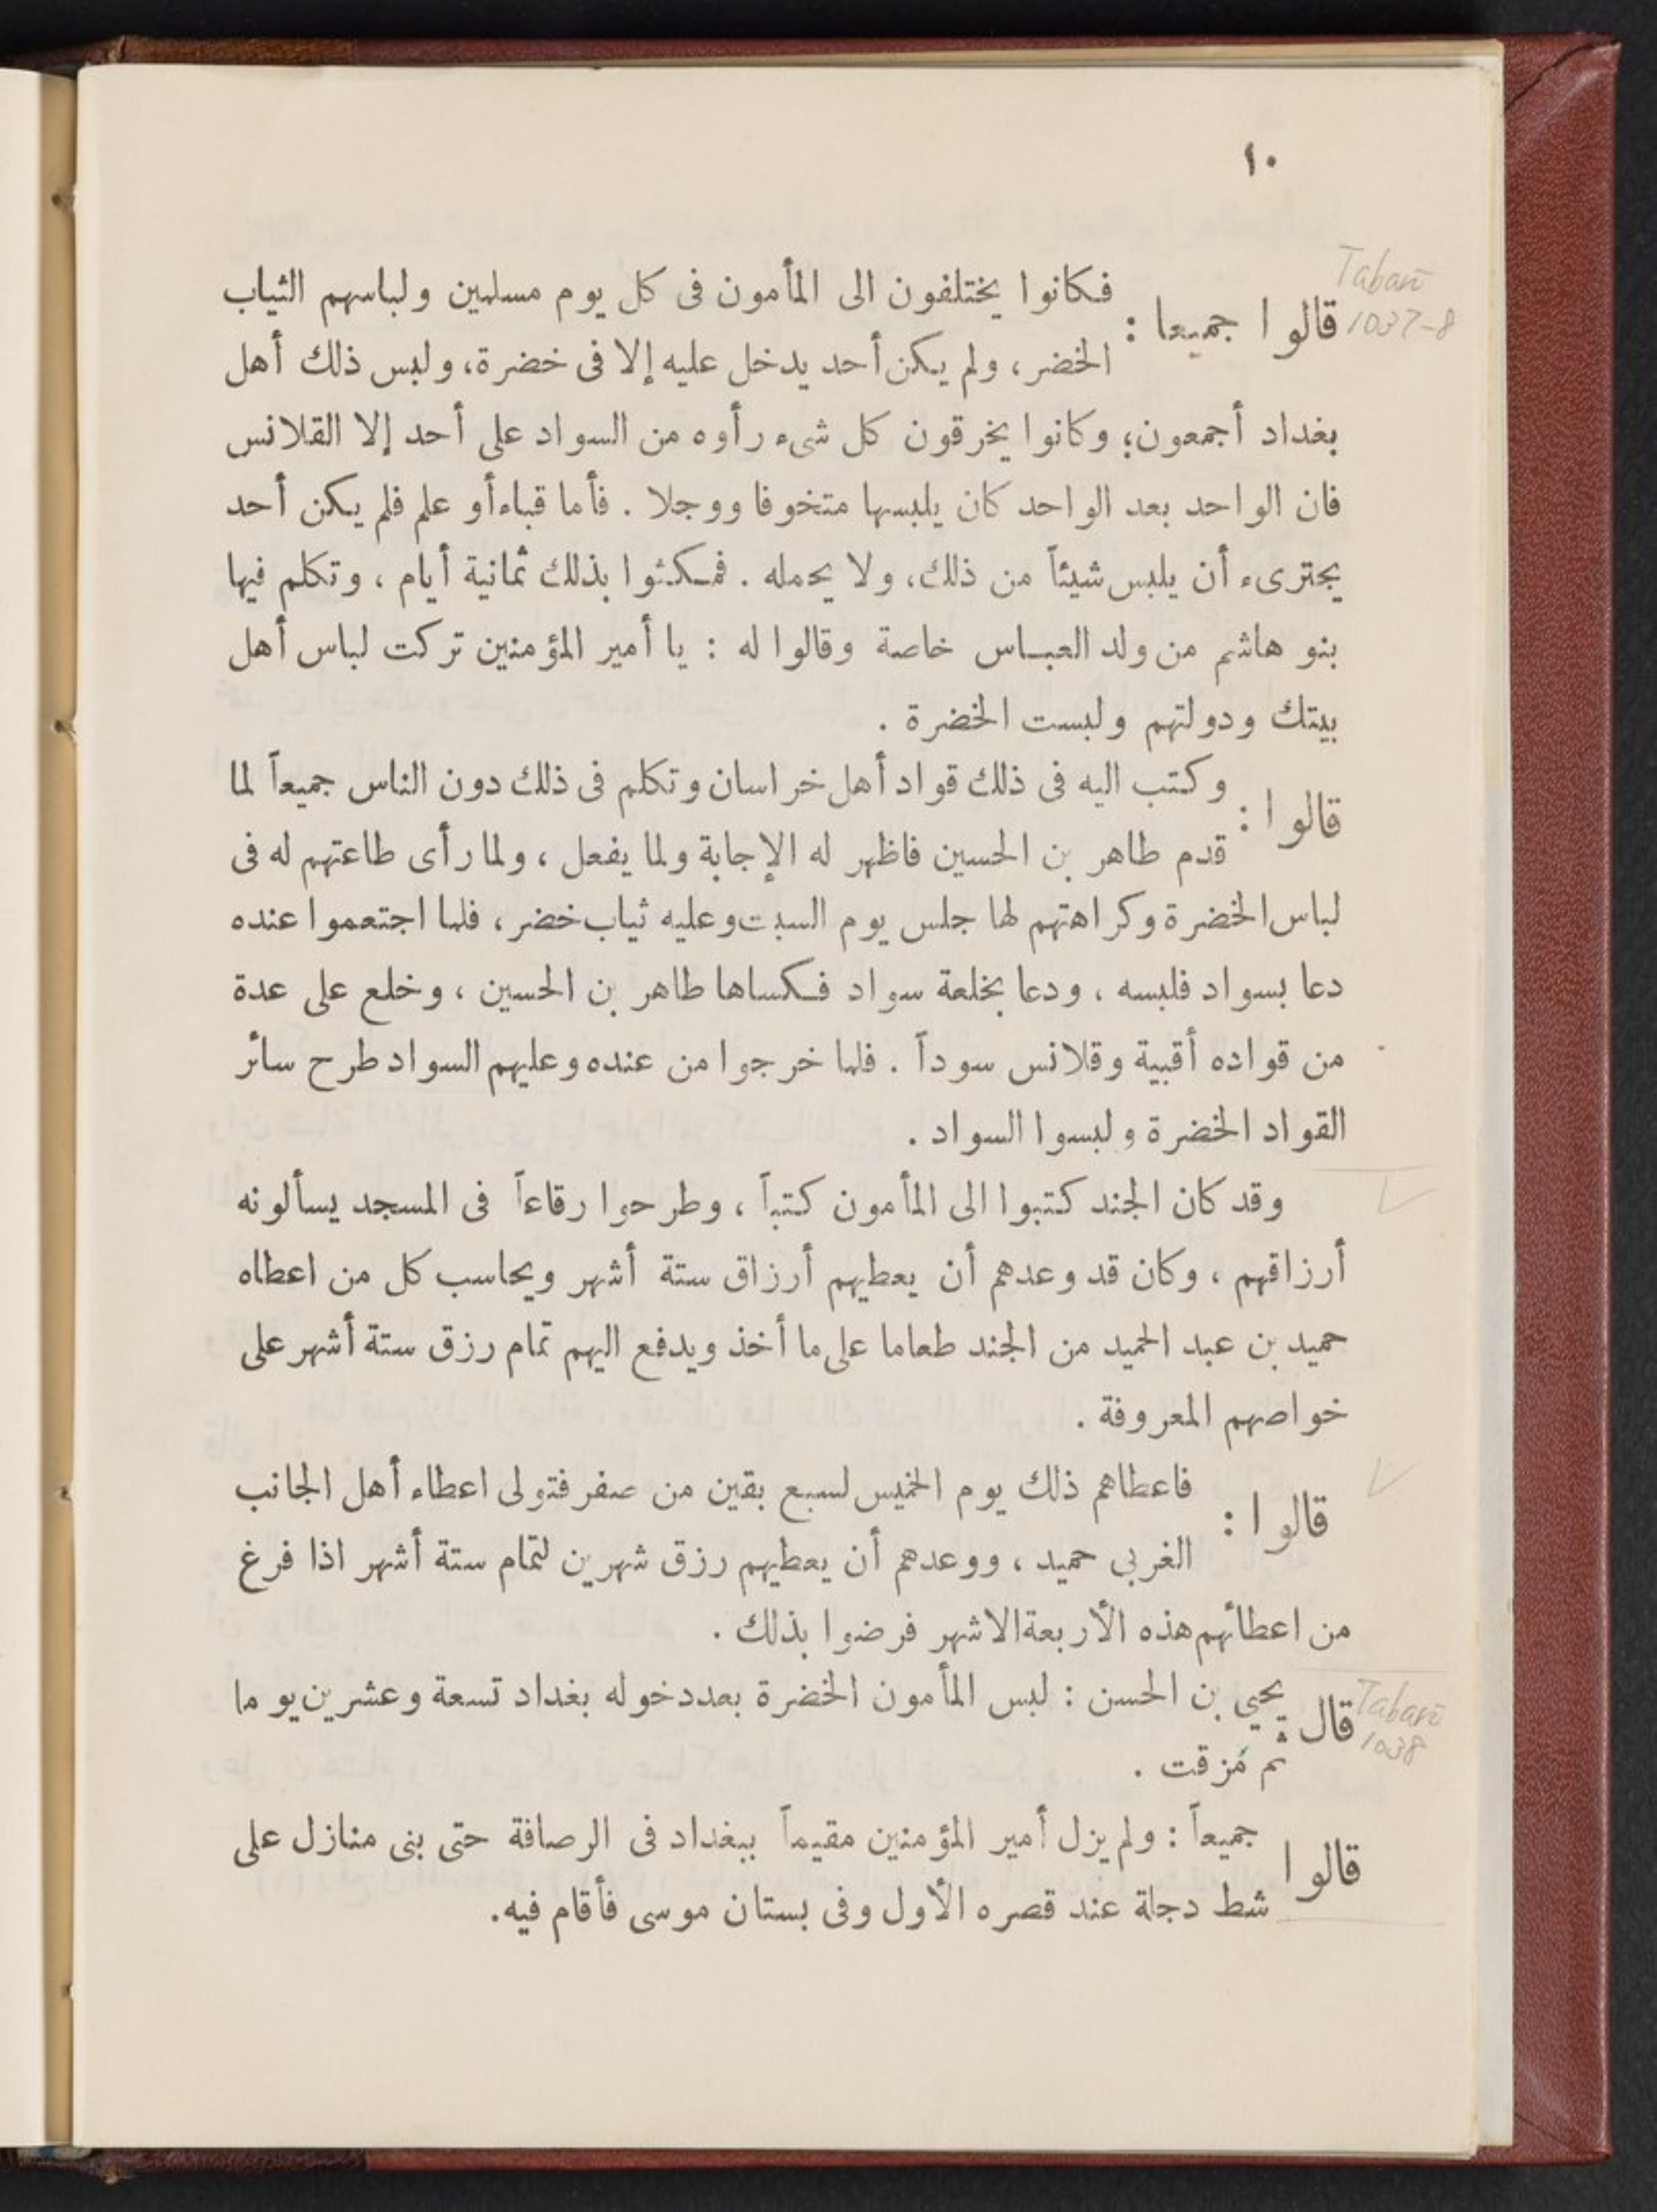 ١٠
Tabarī
1037-8
قالوا جميعا : فكانوا يختلفون الى المأمون فى كل يوم مسلمين ولباسهم الثياب
الخضر، ولم يكن أحد يدخل عليه إلا فى خضرة، ولبس ذلك أهل
بغداد أجمعون؛ وكانوا يخرقون كل شىء رأوه من السواد على أحد إلا القلانس
فان الواحد بعد الواحد كان يلبسها متخوفا ووجلا . فأما قباء أو علم فلم يكن أحد
يجترىء أن يلبس شيئاً من ذلك، ولا يحمله . فمكثوا بذلك ثمانية أيام ، وتكلم فيها
بنو هاشم من ولد العباس خاصة وقالوا له : يا أمير المؤمنين تركت لباس أهل
بيتك ودولتهم ولبست الخضرة .
قالوا : وكتب اليه فى ذلك قواد أهل خراسان وتكلم فى ذلك دون الناس جميعاً لما
قدم طاهر بن الحسين فاظهر له الإجابة ولما يفعل ، ولما رأى طاعتهم له فى
لباس الخضرة وكراهتهم لها جلس يوم السبت وعليه ثياب خضر ، فلما اجتعموا عنده
دعا بسواد فلبسه ، ودعا بخلعة سواد فكساها طاهر بن الحسين ، وخلع على عدة
من قواده أقبية وقلانس سوداً . فلما خرجوا من عنده وعليهم السواد طرح سائر
القواد الخضرة ولبسوا السواد .
وقد كان الجند كتبوا الى المأمون كتباً ، وطرحوا رقاعاً فى المسجد يسألونه
أرزاقهم ، وكان قد وعدهم أن يعطيهم أرزاق ستة أشهر ويحاسب كل من اعطاه
حميد بن عبد الحميد من الجند طعاما على ما أخذ ويدفع اليهم تمام رزق ستة أشهر على
خواصهم المعروفة .
قالوا : فاعطاهم ذلك يوم الخميس لسبع بقين من صفر فتولى اعطاء أهل الجانب
الغربى حميد ، ووعدهم أن يعطيهم رزق شهرين لتمام ستة أشهر اذا فرغ
من اعطائهم هذه الأربعة الاشهر فرضوا بذلك .
Tabarī
1038
قال يحيى بن الحسن : لبس المأمون الخضرة بعد دخوله بغداد تسعة وعشرين يوما
ثم مُزقت .
قالوا جميعاً : ولم يزل أمير المؤمنين مقيماً ببغداد فى الرصافة حتى بنى منازل على
شط دجلة عند قصره الأول وفى بستان موسى فأقام فيه.